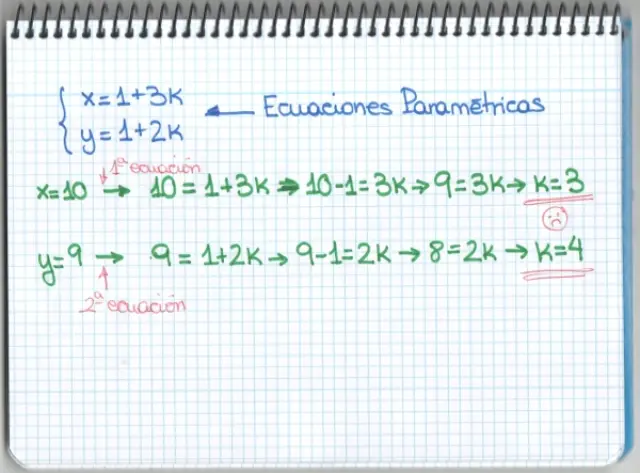 x=1+3K
y=1+2K
← Ecuaciones Paramétricas
1ª ecuación
x=10 → 10=1+3K → 10-1=3K → 9=3K → K=3
y=9 → 9=1+2K → 9-1=2K → 8=2K → K=4
2ª ecuación